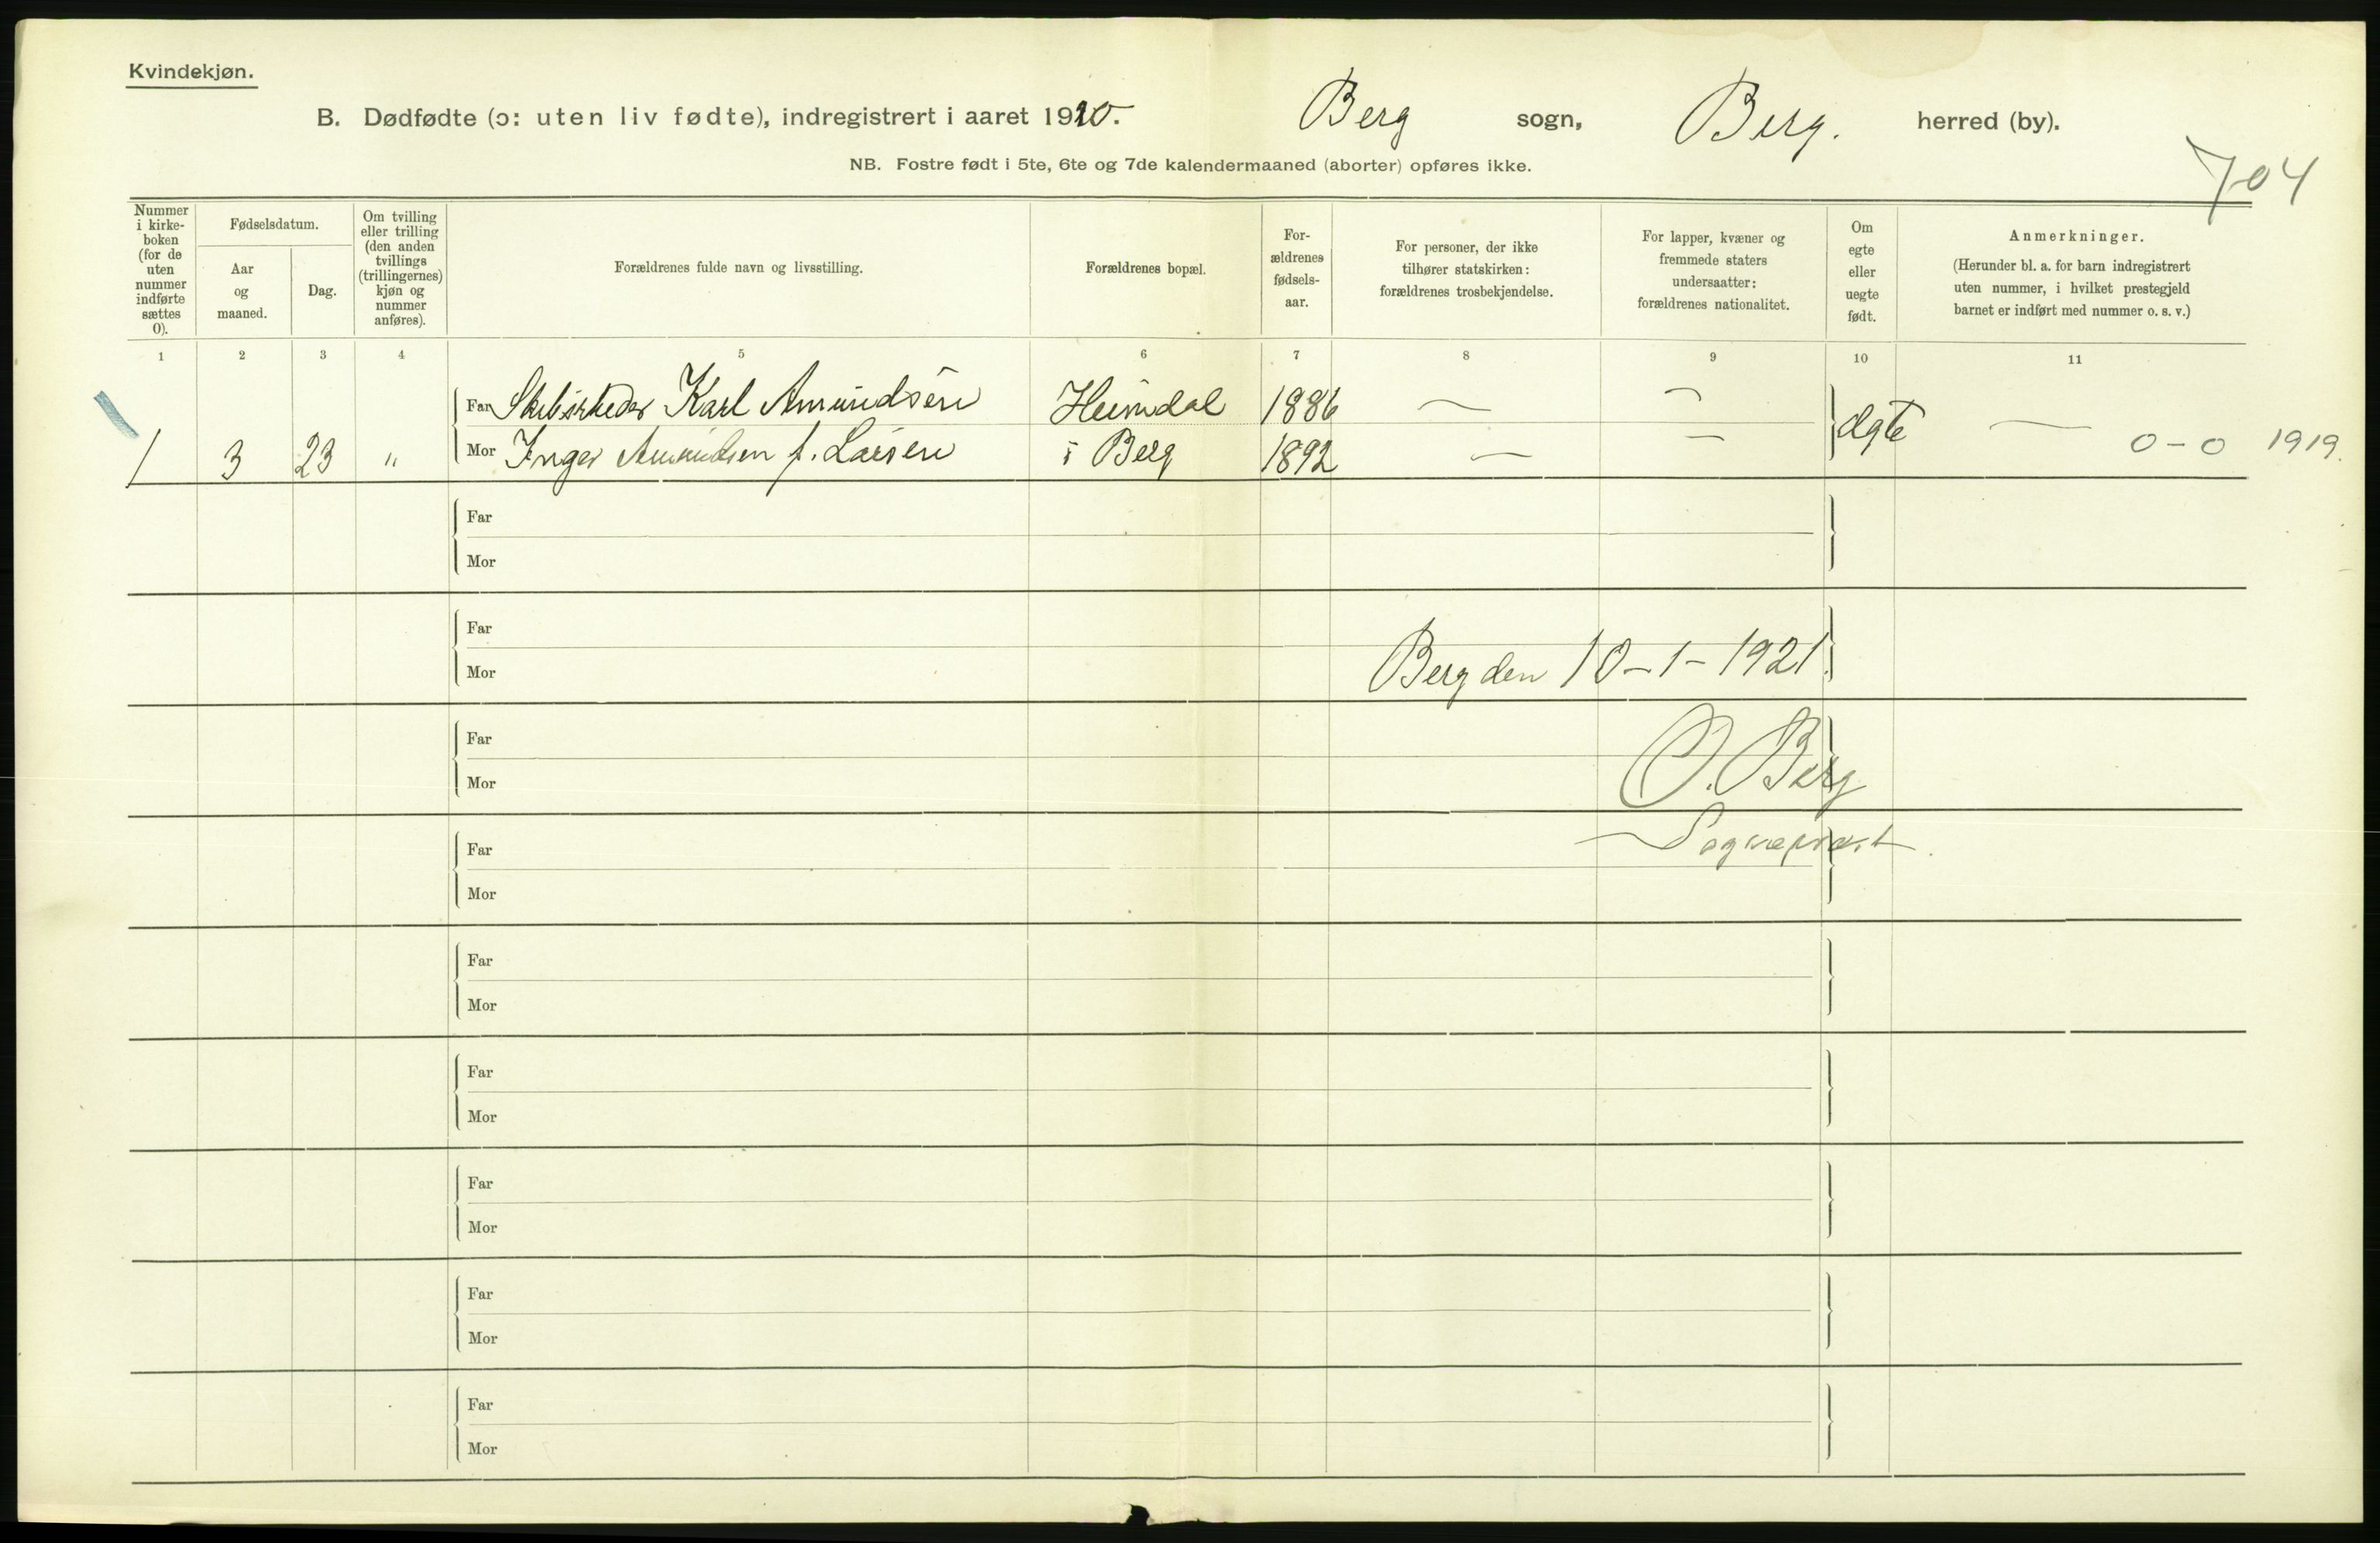 Kvindekjøn.
B. Dødfødte (ɔ: uten liv fødte), indregistrert i aaret 1920. Berg sogn, Berg. herred (by).
NB. Fostre født i 5te, 6te og 7de kalendermaaned (aborter) opføres ikke.
704
Nummer
i kirke-
boken
(for de
uten
nummer
indførte
sættes
0).
Fødselsdatum.
Aar
og
maaned.
Dag.
Om tvilling
eller trilling
(den anden
tvillings
(trillingernes)
kjøn og
nummer
anføres).
Forældrenes fulde navn og livsstilling.
Forældrenes bopæl.
For-
ældrenes
fødsels-
aar.
For personer, der ikke
tilhører statskirken:
forældrenes trosbekjendelse.
For lapper, kvæner og
fremmede staters
undersaatter:
forældrenes nationalitet.
Om
egte
eller
uegte
født.
Anmerkninger.
(Herunder bl. a. for barn indregistrert
uten nummer, i hvilket prestegjeld
barnet er indført med nummer o. s. v.)
1 2 3 4 5 6 7 8 9 10 11
Far Karl Amundsen Heimdal 1886 — —
1 3 23 " Mor Inger Amundsen f. Larsen i Berg 1892 — — egte — 0 - 0 1919.
Far
Mor
Far
Mor
Berg den 10-1-1921.
Far
Mor
O. Berg
Sogneprest.
Far
Mor
Far
Mor
Far
Mor
Far
Mor
Far
Mor
Far
Mor